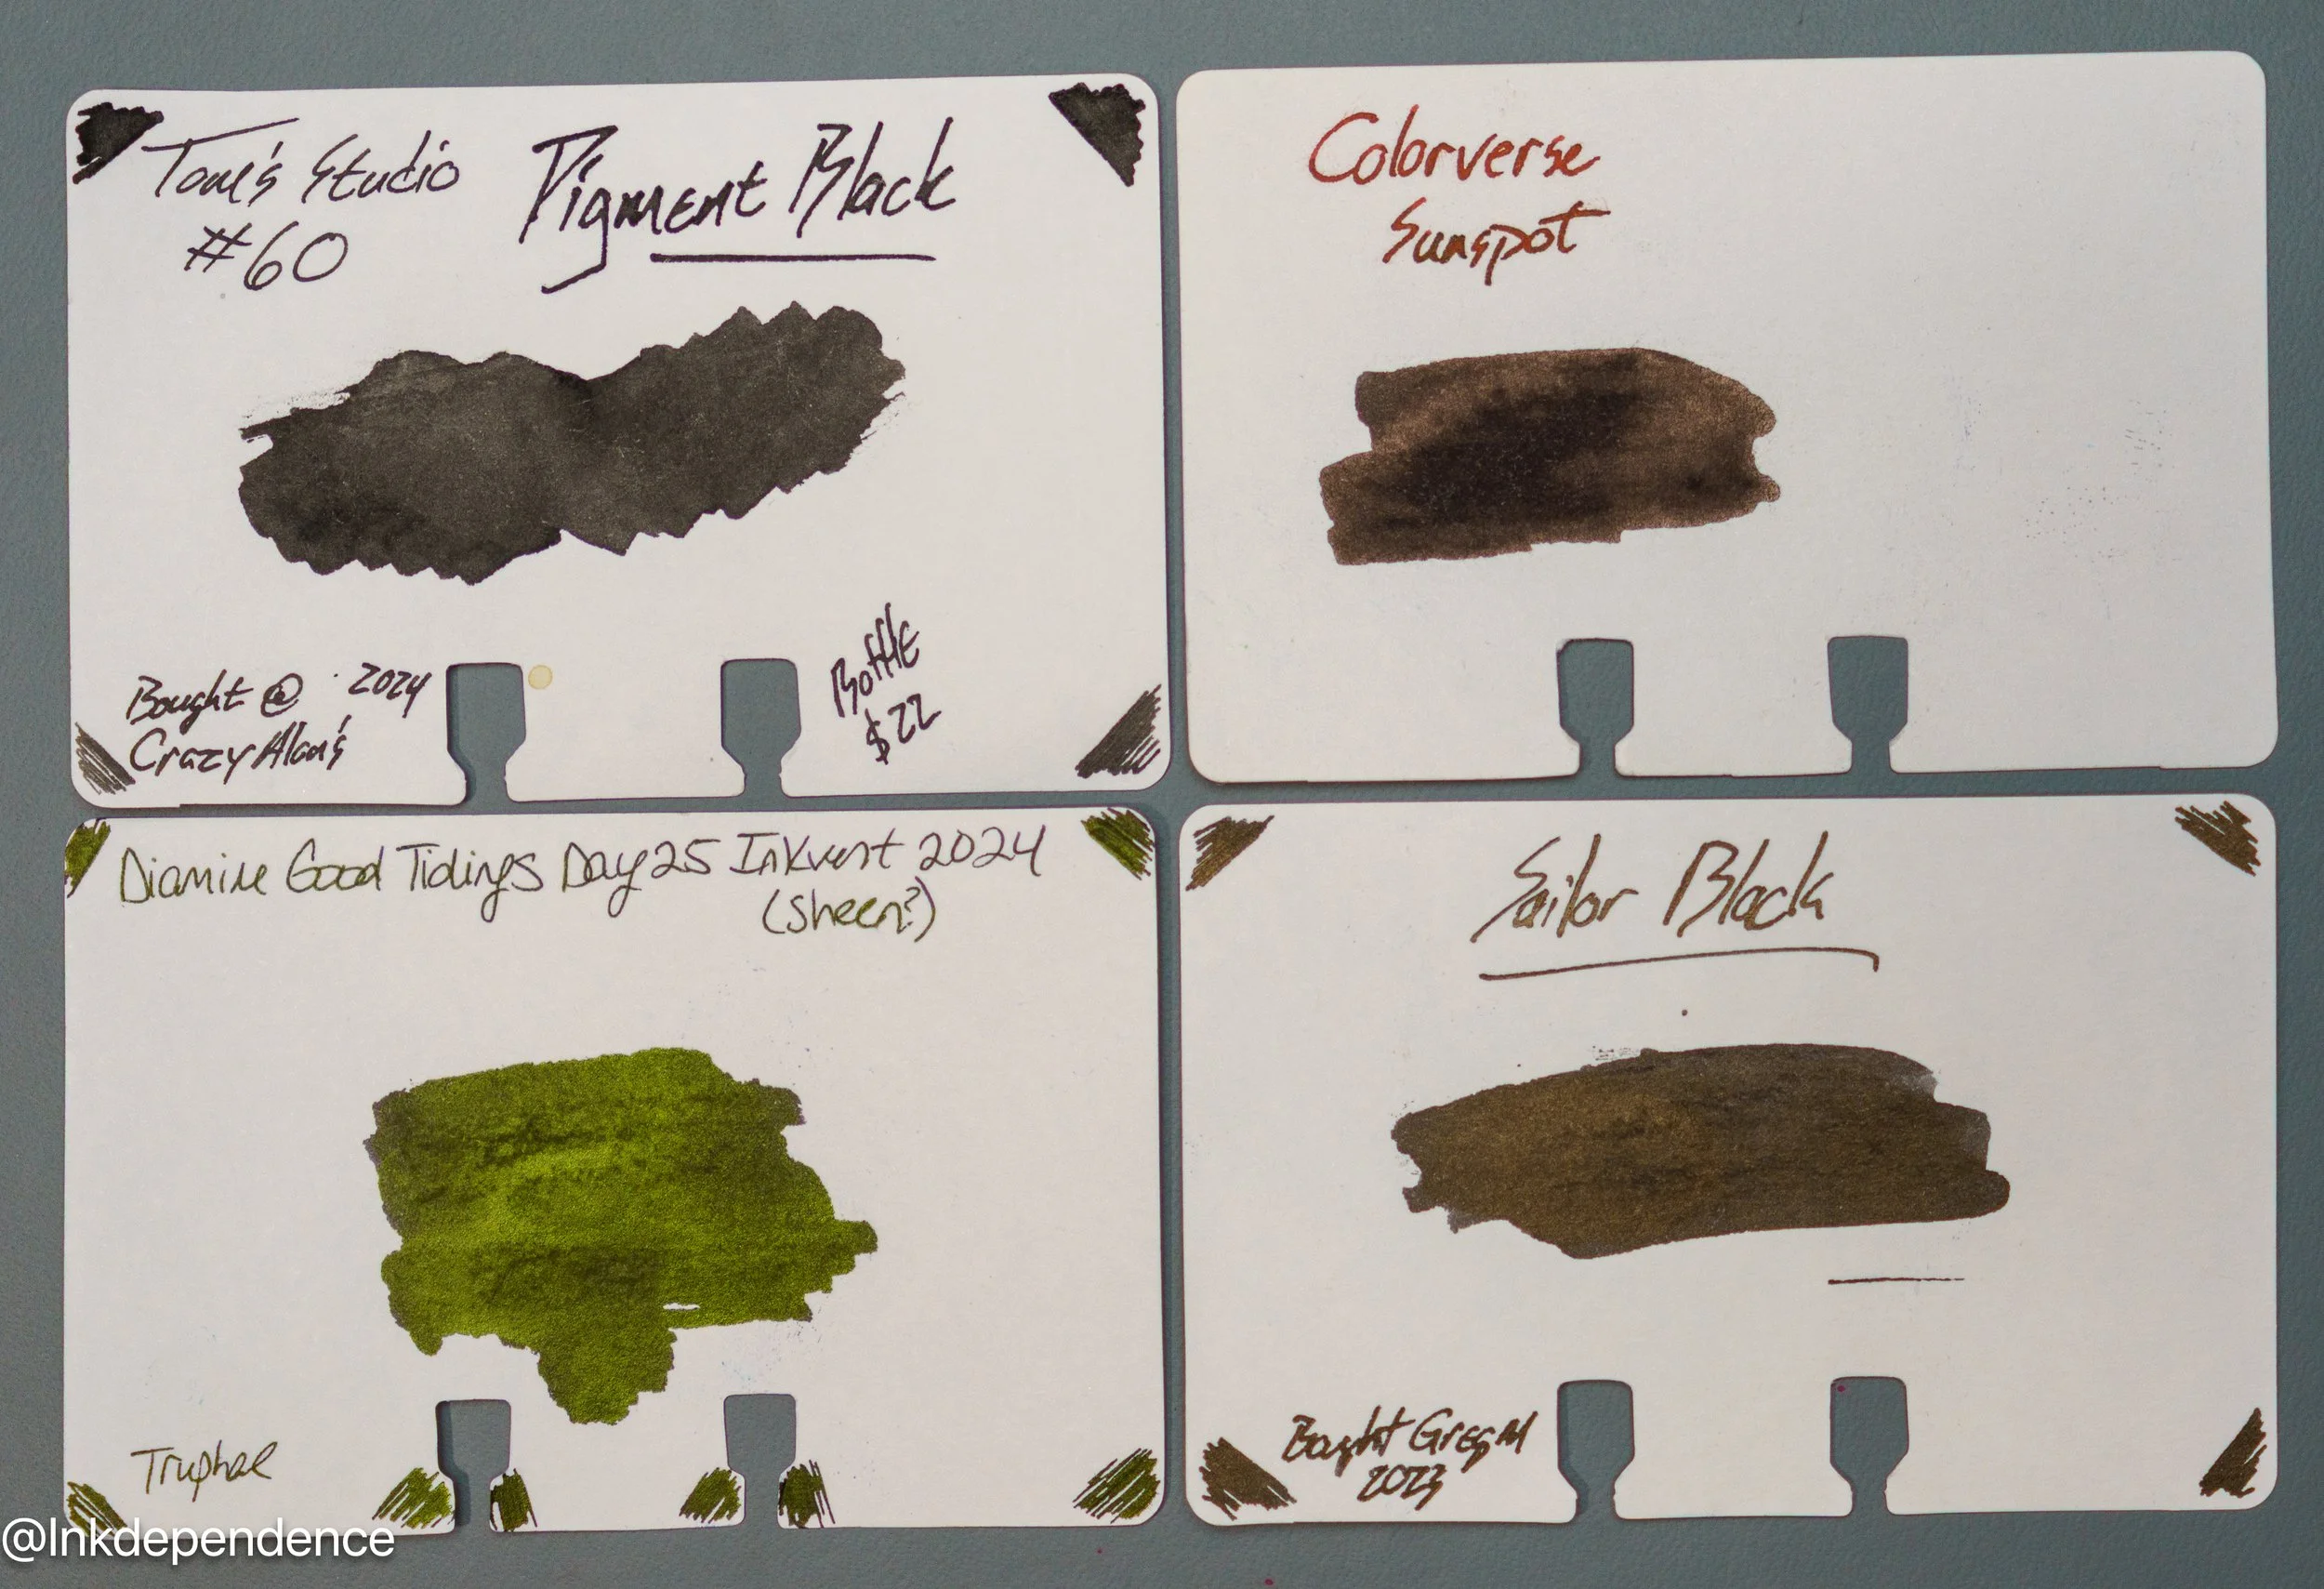 Tom's Studio
#60
Pigment Black
Bought @ 2024
Crazy Alan's
Bottle
$22
Colorverse
Sunspot
Diamine Good Tidings Day 25 Inkvent 2024
(Sheen?)
Truphae
Sailor Black
Bought Greg M
2023
@Inkdependence